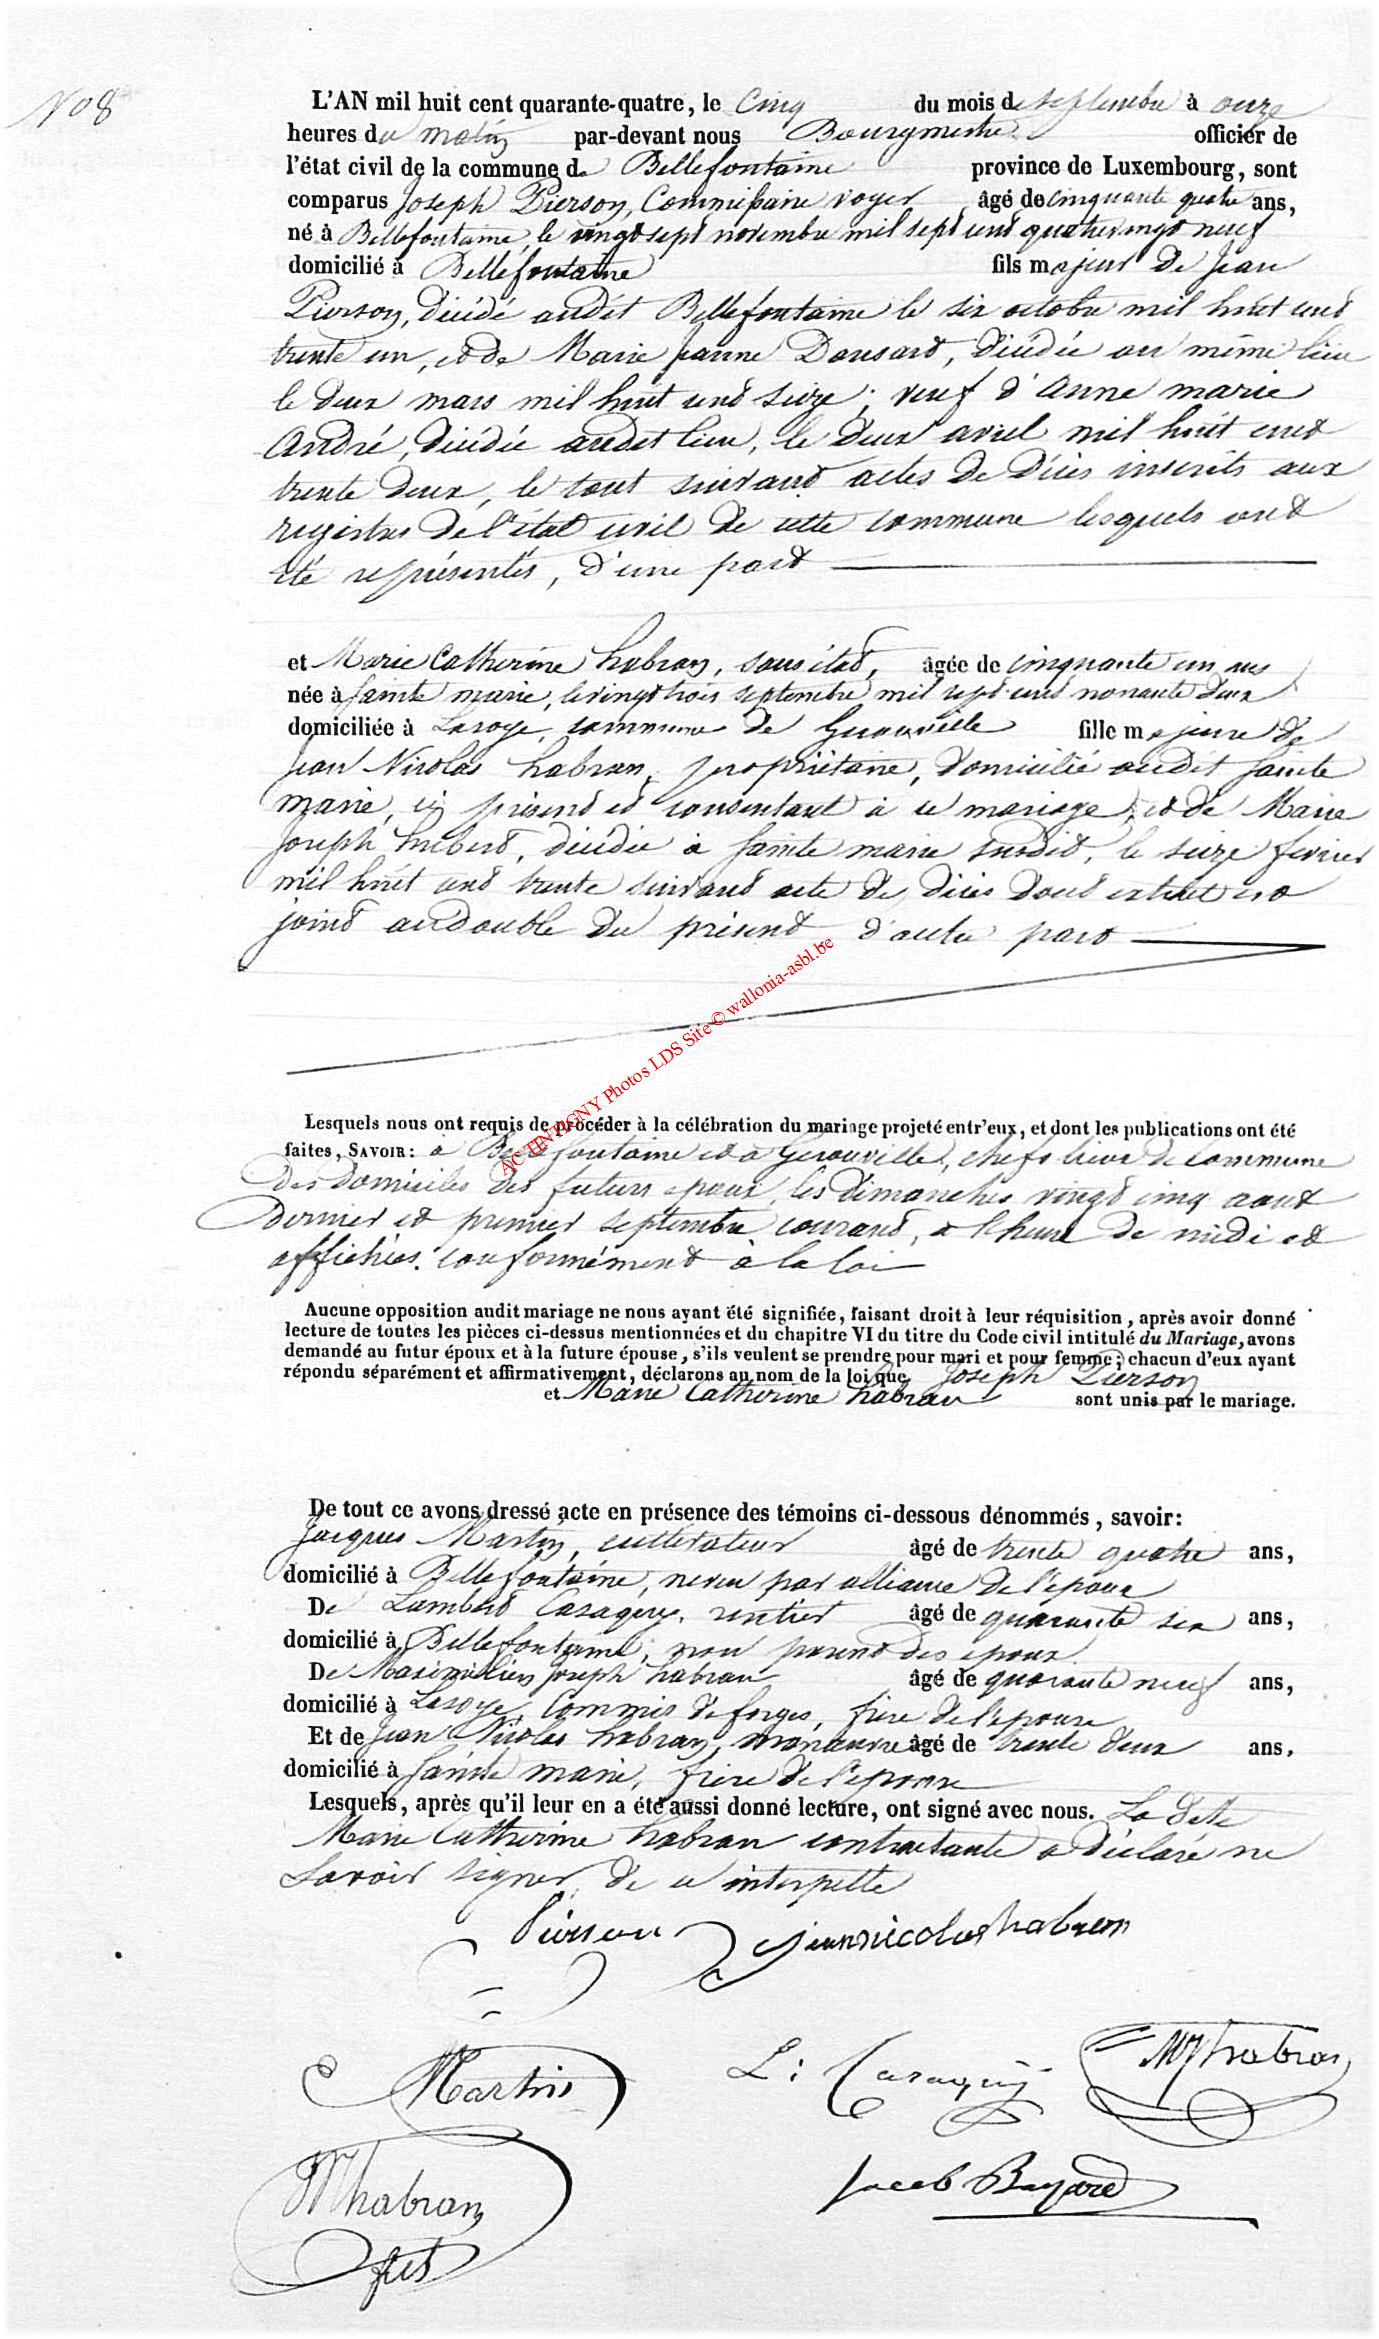 No 8
L'AN mil huit cent quarante-quatre, le Cinq du mois de septembre à onze
heures du matin par-devant nous Bourgmestre officier de
l'état civil de la commune de Bellefontaine province de Luxembourg, sont
comparus Joseph Pierson, Commissaire voyer âgé de cinquante quatre ans,
né à Bellefontaine, le vingt sept novembre mil sept cent quatrevingt neuf
domicilié à Bellefontaine fils majeur de Jean
Pierson, décédé audit Bellefontaine le six octobre mil huit cent
trente un, et de Marie Jeanne Dansart, décédée au même lieu
le deux mars mil huit cent seize; veuf d'Anne marie
André, décédée audit lieu, le deux avril mil huit cent
trente deux, le tout suivant actes de décès inscrits aux
registres de l'état civil de cette commune lesquels ont
été représentés, d'une part
et Marie Catherine habran, sans état, âgée de cinquante un ans
née à Sainte marie, le vingt trois septembre mil sept cent nonante deux
domiciliée à Lasoye, commune de Gerouville fille majeure de
Jean Nicolas habran, propriétaire, domicilié audit Sainte
marie, ici présent et consentant à ce mariage, et de Marie
Joseph hubert, décédée à Sainte marie susdit, le seize fevrier
mil huit cent trente suivant acte de décès dont extrait est
joint au double du présent d'autre part
ACTE TINTIGNY Photos LDS Site © wallonia-asbl.be
Lesquels nous ont requis de procéder à la célébration du mariage projeté entr'eux, et dont les publications ont été
faites, SAVOIR: à Bellefontaine et à Gerouville, chefs lieux de Commune
des domiciles des futurs epoux, les dimanches vingt cinq aout
dernier et premier septembre courant, à l'heure de midi et
affichées conformément à la loi
Aucune opposition audit mariage ne nous ayant été signifiée, faisant droit à leur réquisition, après avoir donné
lecture de toutes les pièces ci-dessus mentionnées et du chapitre VI du titre du Code civil intitulé du Mariage, avons
demandé au futur époux et à la future épouse, s'ils veulent se prendre pour mari et pour femme; chacun d'eux ayant
répondu séparément et affirmativement, déclarons au nom de la loi que Joseph Pierson
et Marie Catherine habran sont unis par le mariage.
De tout ce avons dressé acte en présence des témoins ci-dessous dénommés, savoir:
Jacques Martin, cultivateur âgé de trente quatre ans,
domicilié à Bellefontaine, neveu par alliance de l'epoux
De Lambert Casaquy, rentier âgé de quarante six ans,
domicilié à Bellefontaine, non parent des epoux
De Maximilien Joseph habran âgé de quarante neuf ans,
domicilié à Lasoye, Commis de forges, frère de l'epouse
Et de Jean Nicolas habran, manœuvre âgé de trente deux ans.
domicilié à Sainte marie, frère de l'epouse
Lesquels, après qu'il leur en a été aussi donné lecture, ont signé avec nous. La dite
Marie Catherine habran contractante a déclaré ne
savoir signer, de ce interpellée
Pierson jean nicolas habran
Martin L: Casaquy MJ habran
JN habran fils Jacob Bayard